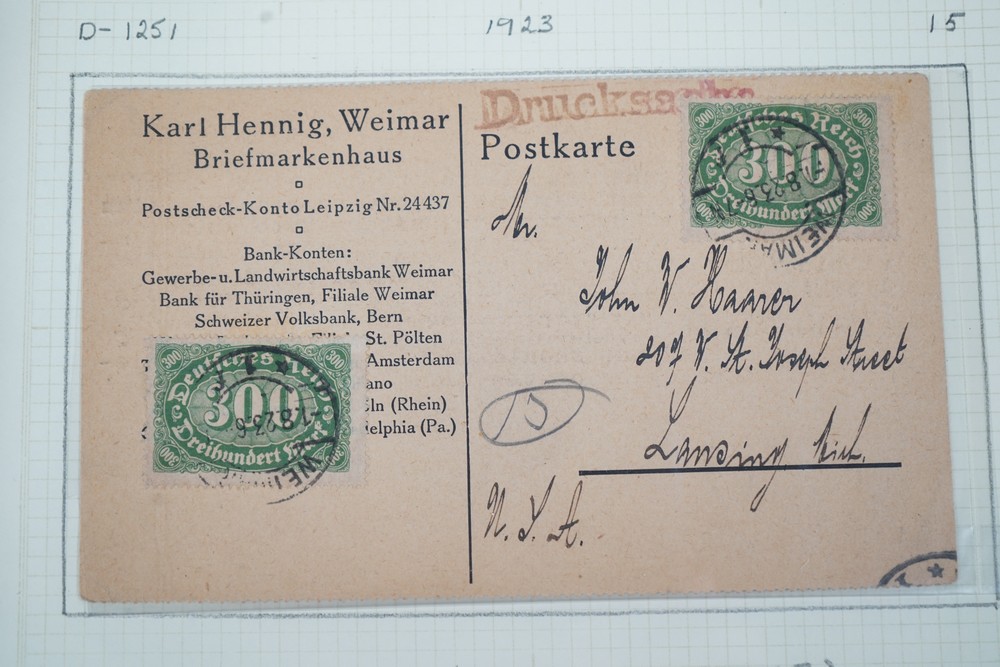 D-1251 1923 15
Karl Hennig, Weimar
Briefmarkenhaus
Postscheck-Konto Leipzig Nr. 24437
Bank-Konten:
Gewerbe- u. Landwirtschaftsbank Weimar
Bank für Thüringen, Filiale Weimar
Schweizer Volksbank, Bern
St. Pölten
Amsterdam
ano
ln (Rhein)
elphia (Pa.)
300 300
Deutsches Reich
300
Dreihundert Mark
300
WEIMAR
-1.8.23.6
Drucksache
Postkarte
300 300
Deutsches Reich
300
Dreihundert Mark
300 300
WEIMAR
-1.8.23.6
Mr.
John W. Haarer
207 W. St. Joseph Street
Lansing Mich.
U. S. A.
15